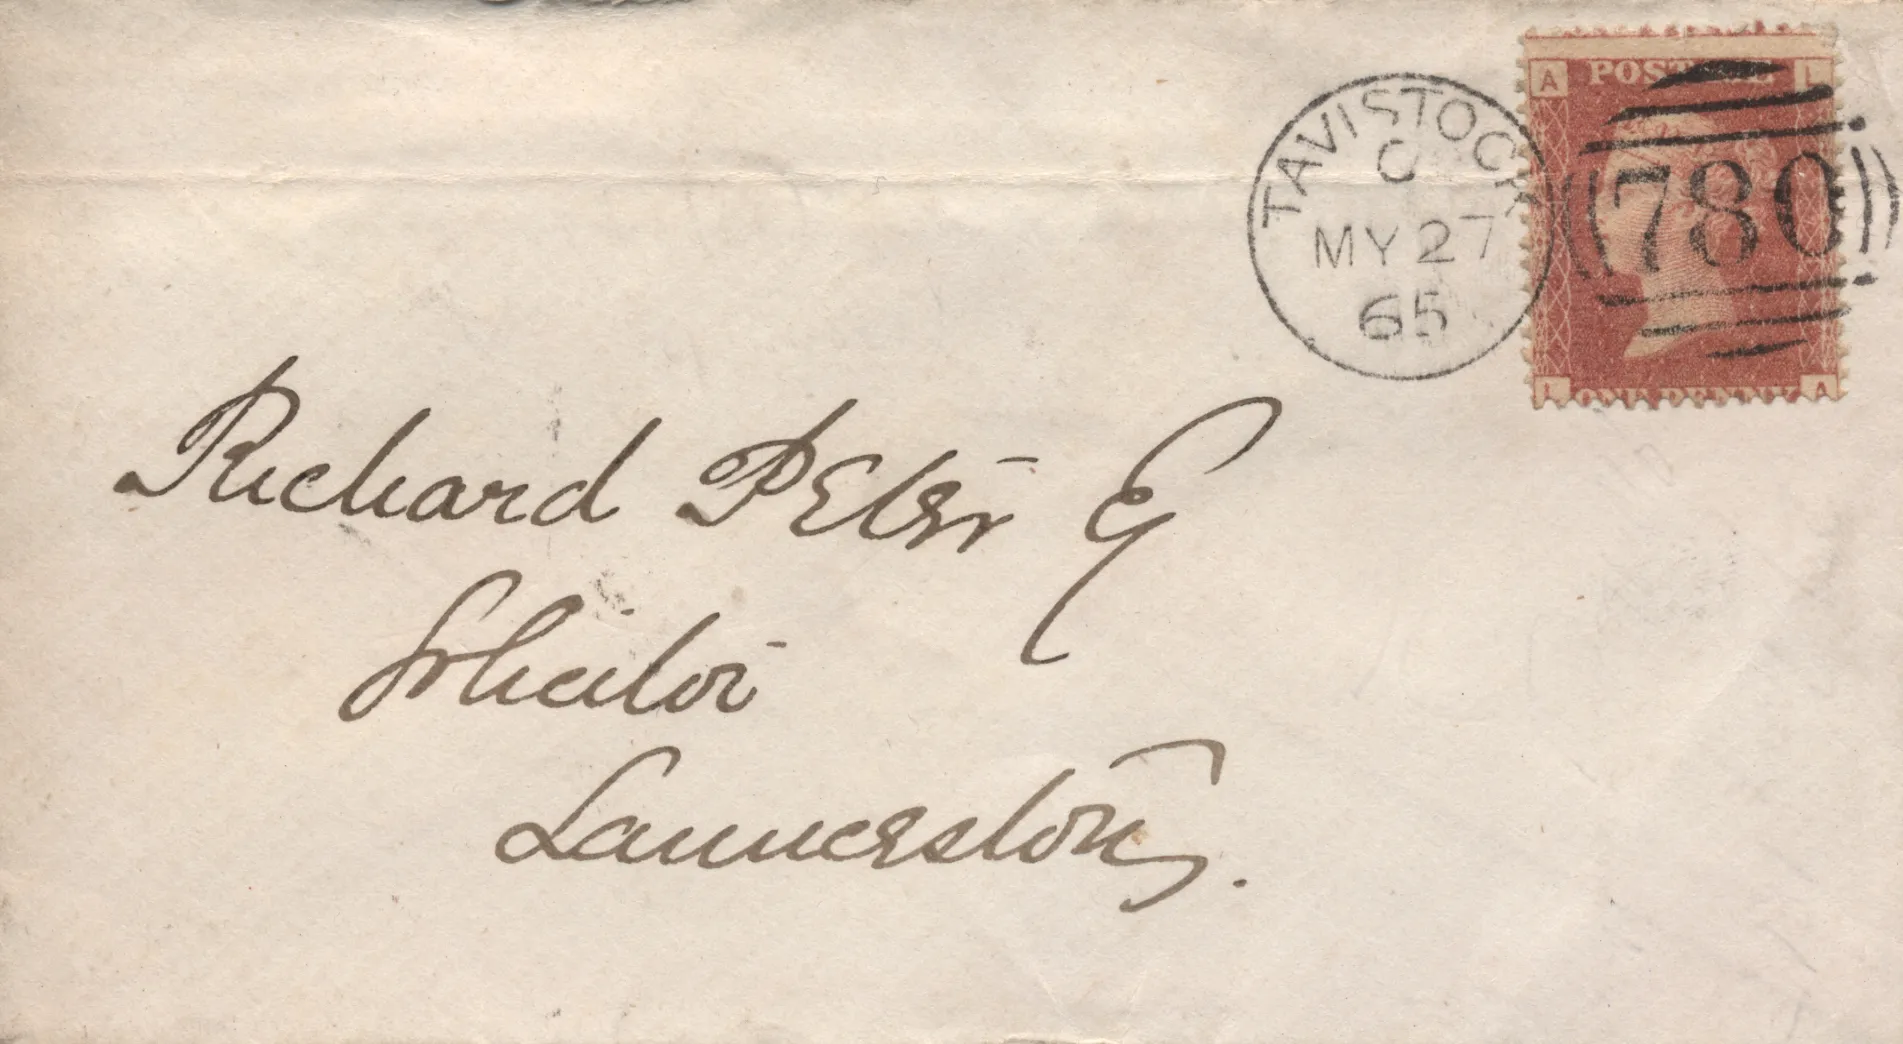 A POSTAGE L
TAVISTOCK
C
MY 27
65
780
L ONE PENNY A
Richard Peter E
Solicitor
Launceston.